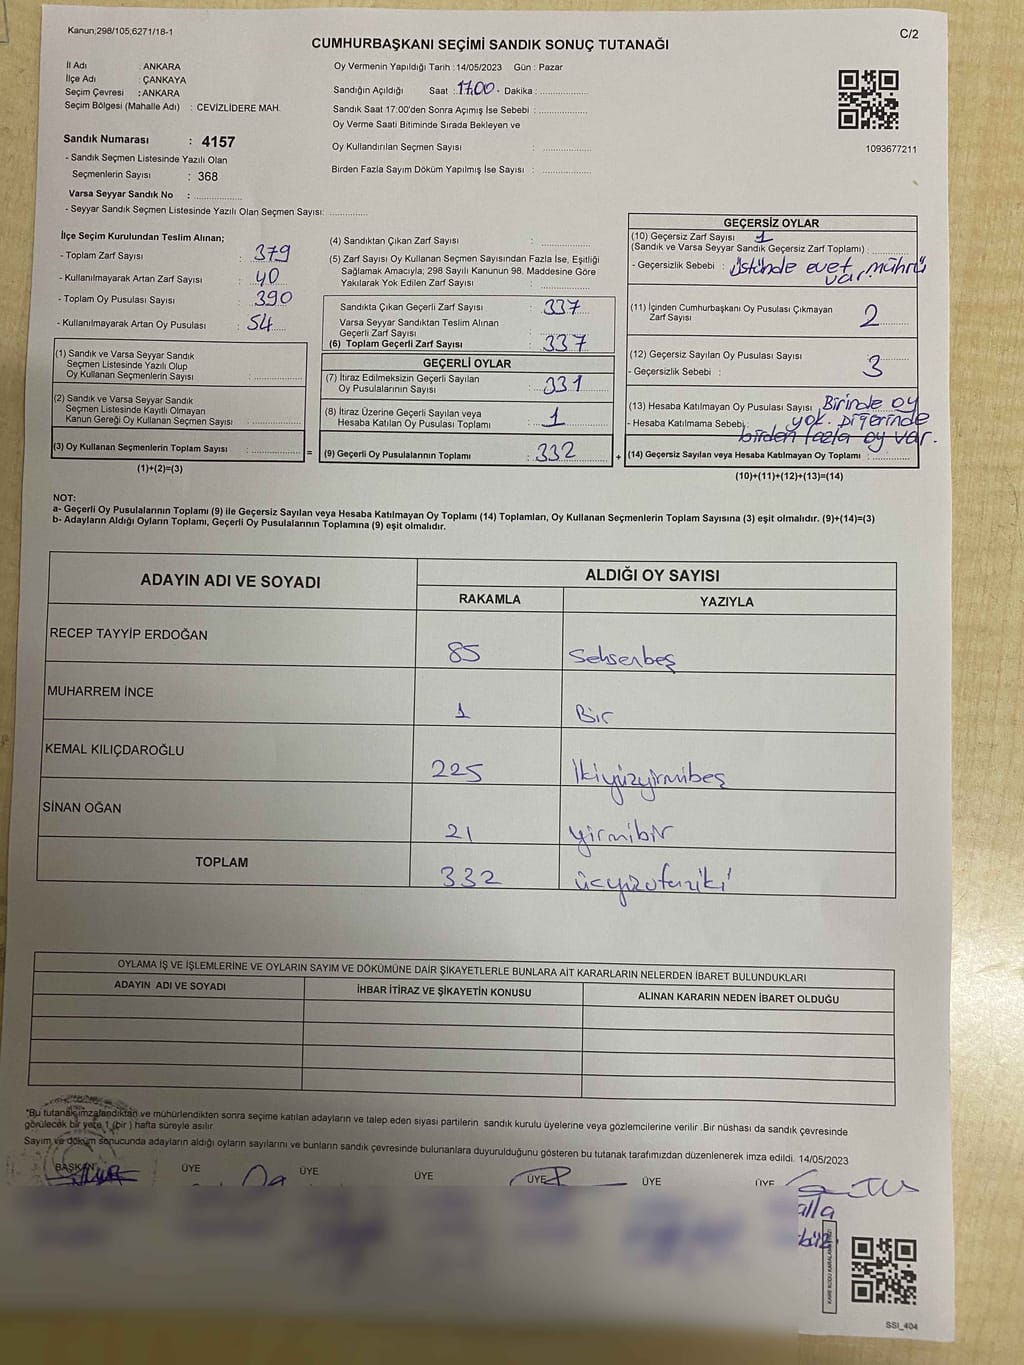 Kanun;298/105;6271/18-1
C/2
CUMHURBAŞKANI SEÇİMİ SANDIK SONUÇ TUTANAĞI
İl Adı : ANKARA
İlçe Adı : ÇANKAYA
Seçim Çevresi : ANKARA
Seçim Bölgesi (Mahalle Adı) : CEVİZLİDERE MAH.
Oy Vermenin Yapıldığı Tarih :14/05/2023 Gün : Pazar
Sandığın Açıldığı Saat : 17.00. Dakika : ..................
Sandık Saat 17:00'den Sonra Açımış İse Sebebi : ..................
Oy Verme Saati Bitiminde Sırada Bekleyen ve
Oy Kullandırılan Seçmen Sayısı : ..................
Birden Fazla Sayım Döküm Yapılmış İse Sayısı : ..................
1093677211
Sandık Numarası : 4157
- Sandık Seçmen Listesinde Yazılı Olan
Seçmenlerin Sayısı : 368
Varsa Seyyar Sandık No : ..................
- Seyyar Sandık Seçmen Listesinde Yazılı Olan Seçmen Sayısı: ..............
İlçe Seçim Kurulundan Teslim Alınan;
- Toplam Zarf Sayısı : 379
- Kullanılmayarak Artan Zarf Sayısı : 40
- Toplam Oy Pusulası Sayısı : 390
- Kullanılmayarak Artan Oy Pusulası : 54
(1) Sandık ve Varsa Seyyar Sandık
Seçmen Listesinde Yazılı Olup
Oy Kullanan Seçmenlerin Sayısı : ..................
(2) Sandık ve Varsa Seyyar Sandık
Seçmen Listesinde Kayıtlı Olmayan
Kanun Gereği Oy Kullanan Seçmen Sayısı : ..................
(3) Oy Kullanan Seçmenlerin Toplam Sayısı : .................. =
(1)+(2)=(3)
(4) Sandıktan Çıkan Zarf Sayısı : ..................
(5) Zarf Sayısı Oy Kullanan Seçmen Sayısından Fazla İse, Eşitliği
Sağlamak Amacıyla; 298 Sayılı Kanunun 98. Maddesine Göre
Yakılarak Yok Edilen Zarf Sayısı : ..................
Sandıkta Çıkan Geçerli Zarf Sayısı : 337
Varsa Seyyar Sandıktan Teslim Alınan
Geçerli Zarf Sayısı
(6) Toplam Geçerli Zarf Sayısı : 337
GEÇERLİ OYLAR
(7) İtiraz Edilmeksizin Geçerli Sayılan
Oy Pusulalarının Sayısı : 331
(8) İtiraz Üzerine Geçerli Sayılan veya
Hesaba Katılan Oy Pusulası Toplamı : 1
(9) Geçerli Oy Pusulalarının Toplamı : 332 +
GEÇERSİZ OYLAR
(10) Geçersiz Zarf Sayısı 1
(Sandık ve Varsa Seyyar Sandık Geçersiz Zarf Toplamı) : ..................
- Geçersizlik Sebebi : Üstünde evet mührü
var.
(11) İçinden Cumhurbaşkanı Oy Pusulası Çıkmayan
Zarf Sayısı 2
(12) Geçersiz Sayılan Oy Pusulası Sayısı 3
- Geçersizlik Sebebi :
(13) Hesaba Katılmayan Oy Pusulası Sayısı Birinde oy
- Hesaba Katılmama Sebebi: yok. Diğerinde
birden fazla oy var.
(14) Geçersiz Sayılan veya Hesaba Katılmayan Oy Toplamı : ..................
(10)+(11)+(12)+(13)=(14)
NOT:
a- Geçerli Oy Pusulalarının Toplamı (9) ile Geçersiz Sayılan veya Hesaba Katılmayan Oy Toplamı (14) Toplamları, Oy Kullanan Seçmenlerin Toplam Sayısına (3) eşit olmalıdır. (9)+(14)=(3)
b- Adayların Aldığı Oyların Toplamı, Geçerli Oy Pusulalarının Toplamına (9) eşit olmalıdır.
ADAYIN ADI VE SOYADI
ALDIĞI OY SAYISI
RAKAMLA YAZIYLA
RECEP TAYYİP ERDOĞAN 85 Seksenbeş
MUHARREM İNCE 1 Bir
KEMAL KILIÇDAROĞLU 225 İkiyüzyirmibeş
SİNAN OĞAN 21 yirmibir
TOPLAM 332 üçyüzotuziki
OYLAMA İŞ VE İŞLEMLERİNE VE OYLARIN SAYIM VE DÖKÜMÜNE DAİR ŞİKAYETLERLE BUNLARA AİT KARARLARIN NELERDEN İBARET BULUNDUKLARI
ADAYIN ADI VE SOYADI İHBAR İTİRAZ VE ŞİKAYETİN KONUSU ALINAN KARARIN NEDEN İBARET OLDUĞU
*Bu tutanak imzalandıktan ve mühürlendikten sonra seçime katılan adayların ve talep eden siyasi partilerin sandık kurulu üyelerine veya gözlemcilerine verilir .Bir nüshası da sandık çevresinde
görülecek bir yere 1 (bir ) hafta süreyle asılır.
Sayım ve döküm sonucunda adayların aldığı oyların sayılarını ve bunların sandık çevresinde bulunanlara duyurulduğunu gösteren bu tutanak tarafımızdan düzenlenerek imza edildi. 14/05/2023
BAŞKAN ÜYE ÜYE ÜYE ÜYE ÜYE ÜYE
SSI_404